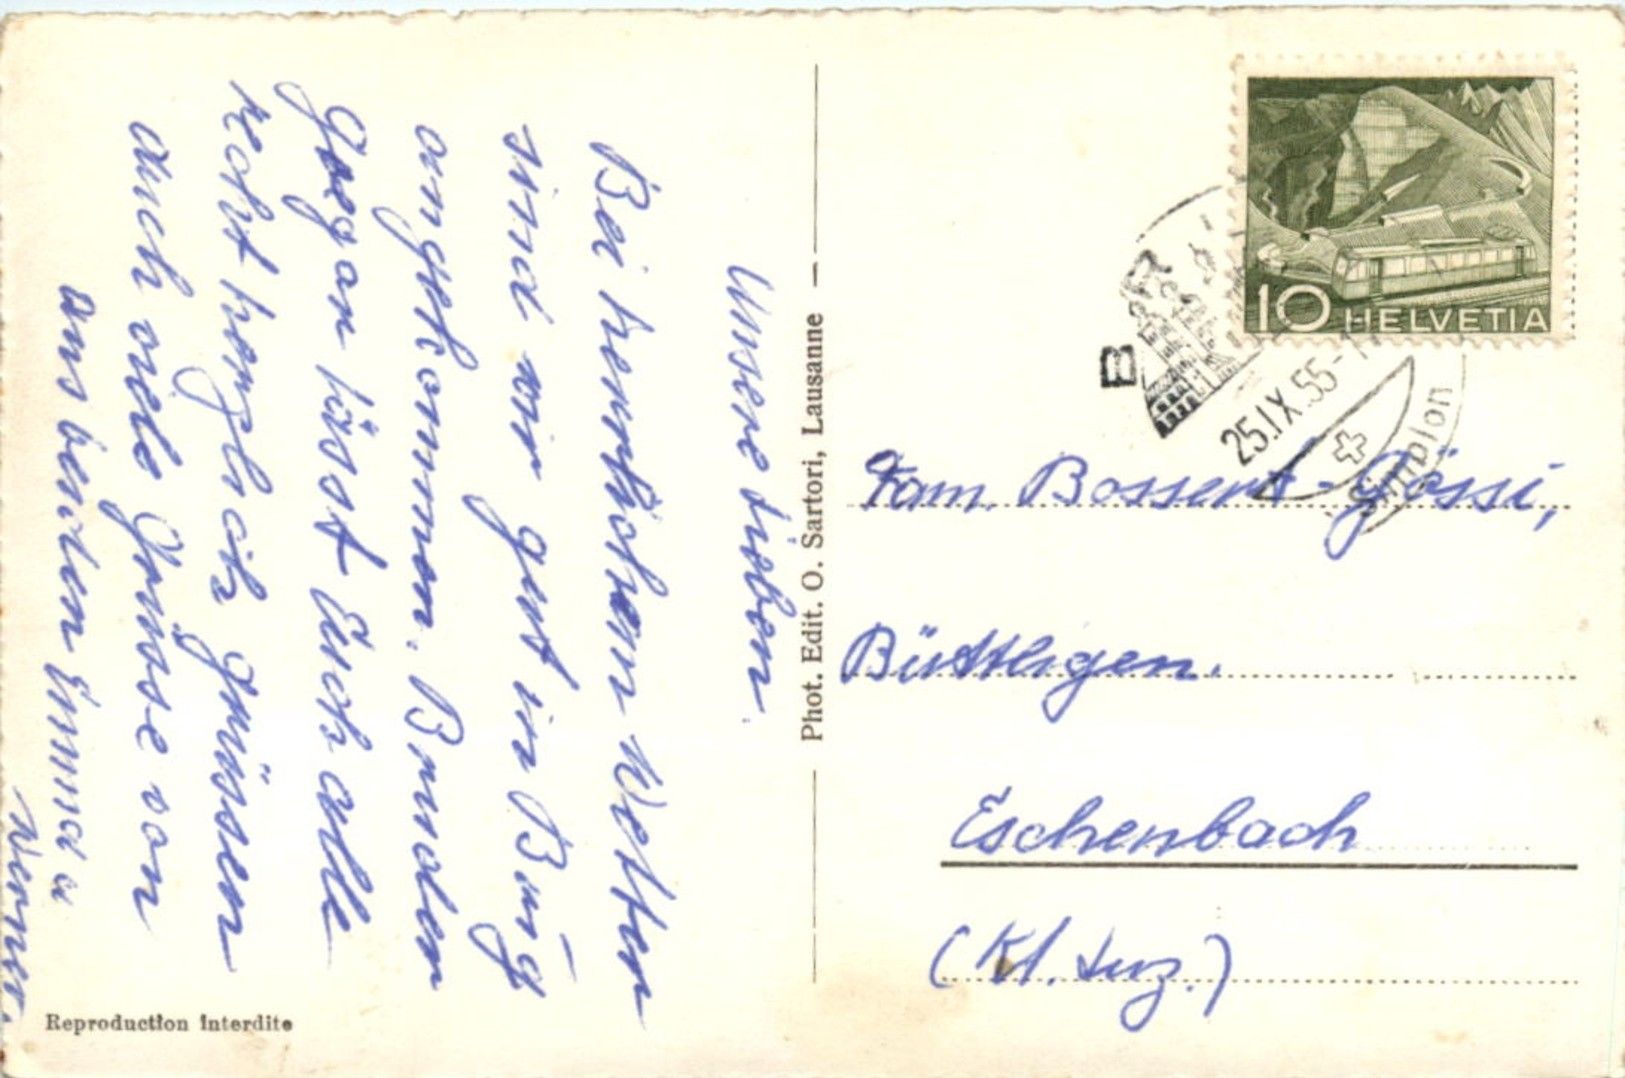 Unsere Lieben.
Bei herrlichem Wetter
sind wir gut in Burg
angekommen. Bruder
Gregor lässt Euch alle
recht herzlich grüssen
auch viele Grüsse von
uns beiden Emma u
Werner.
Reproduction interdite
Phot. Edit. O. Sartori, Lausanne
10 HELVETIA
25.IX.55-1
Simplon
Fam. Bossert-Gössi,
Büttligen.
Eschenbach
(Kt. Luz.)